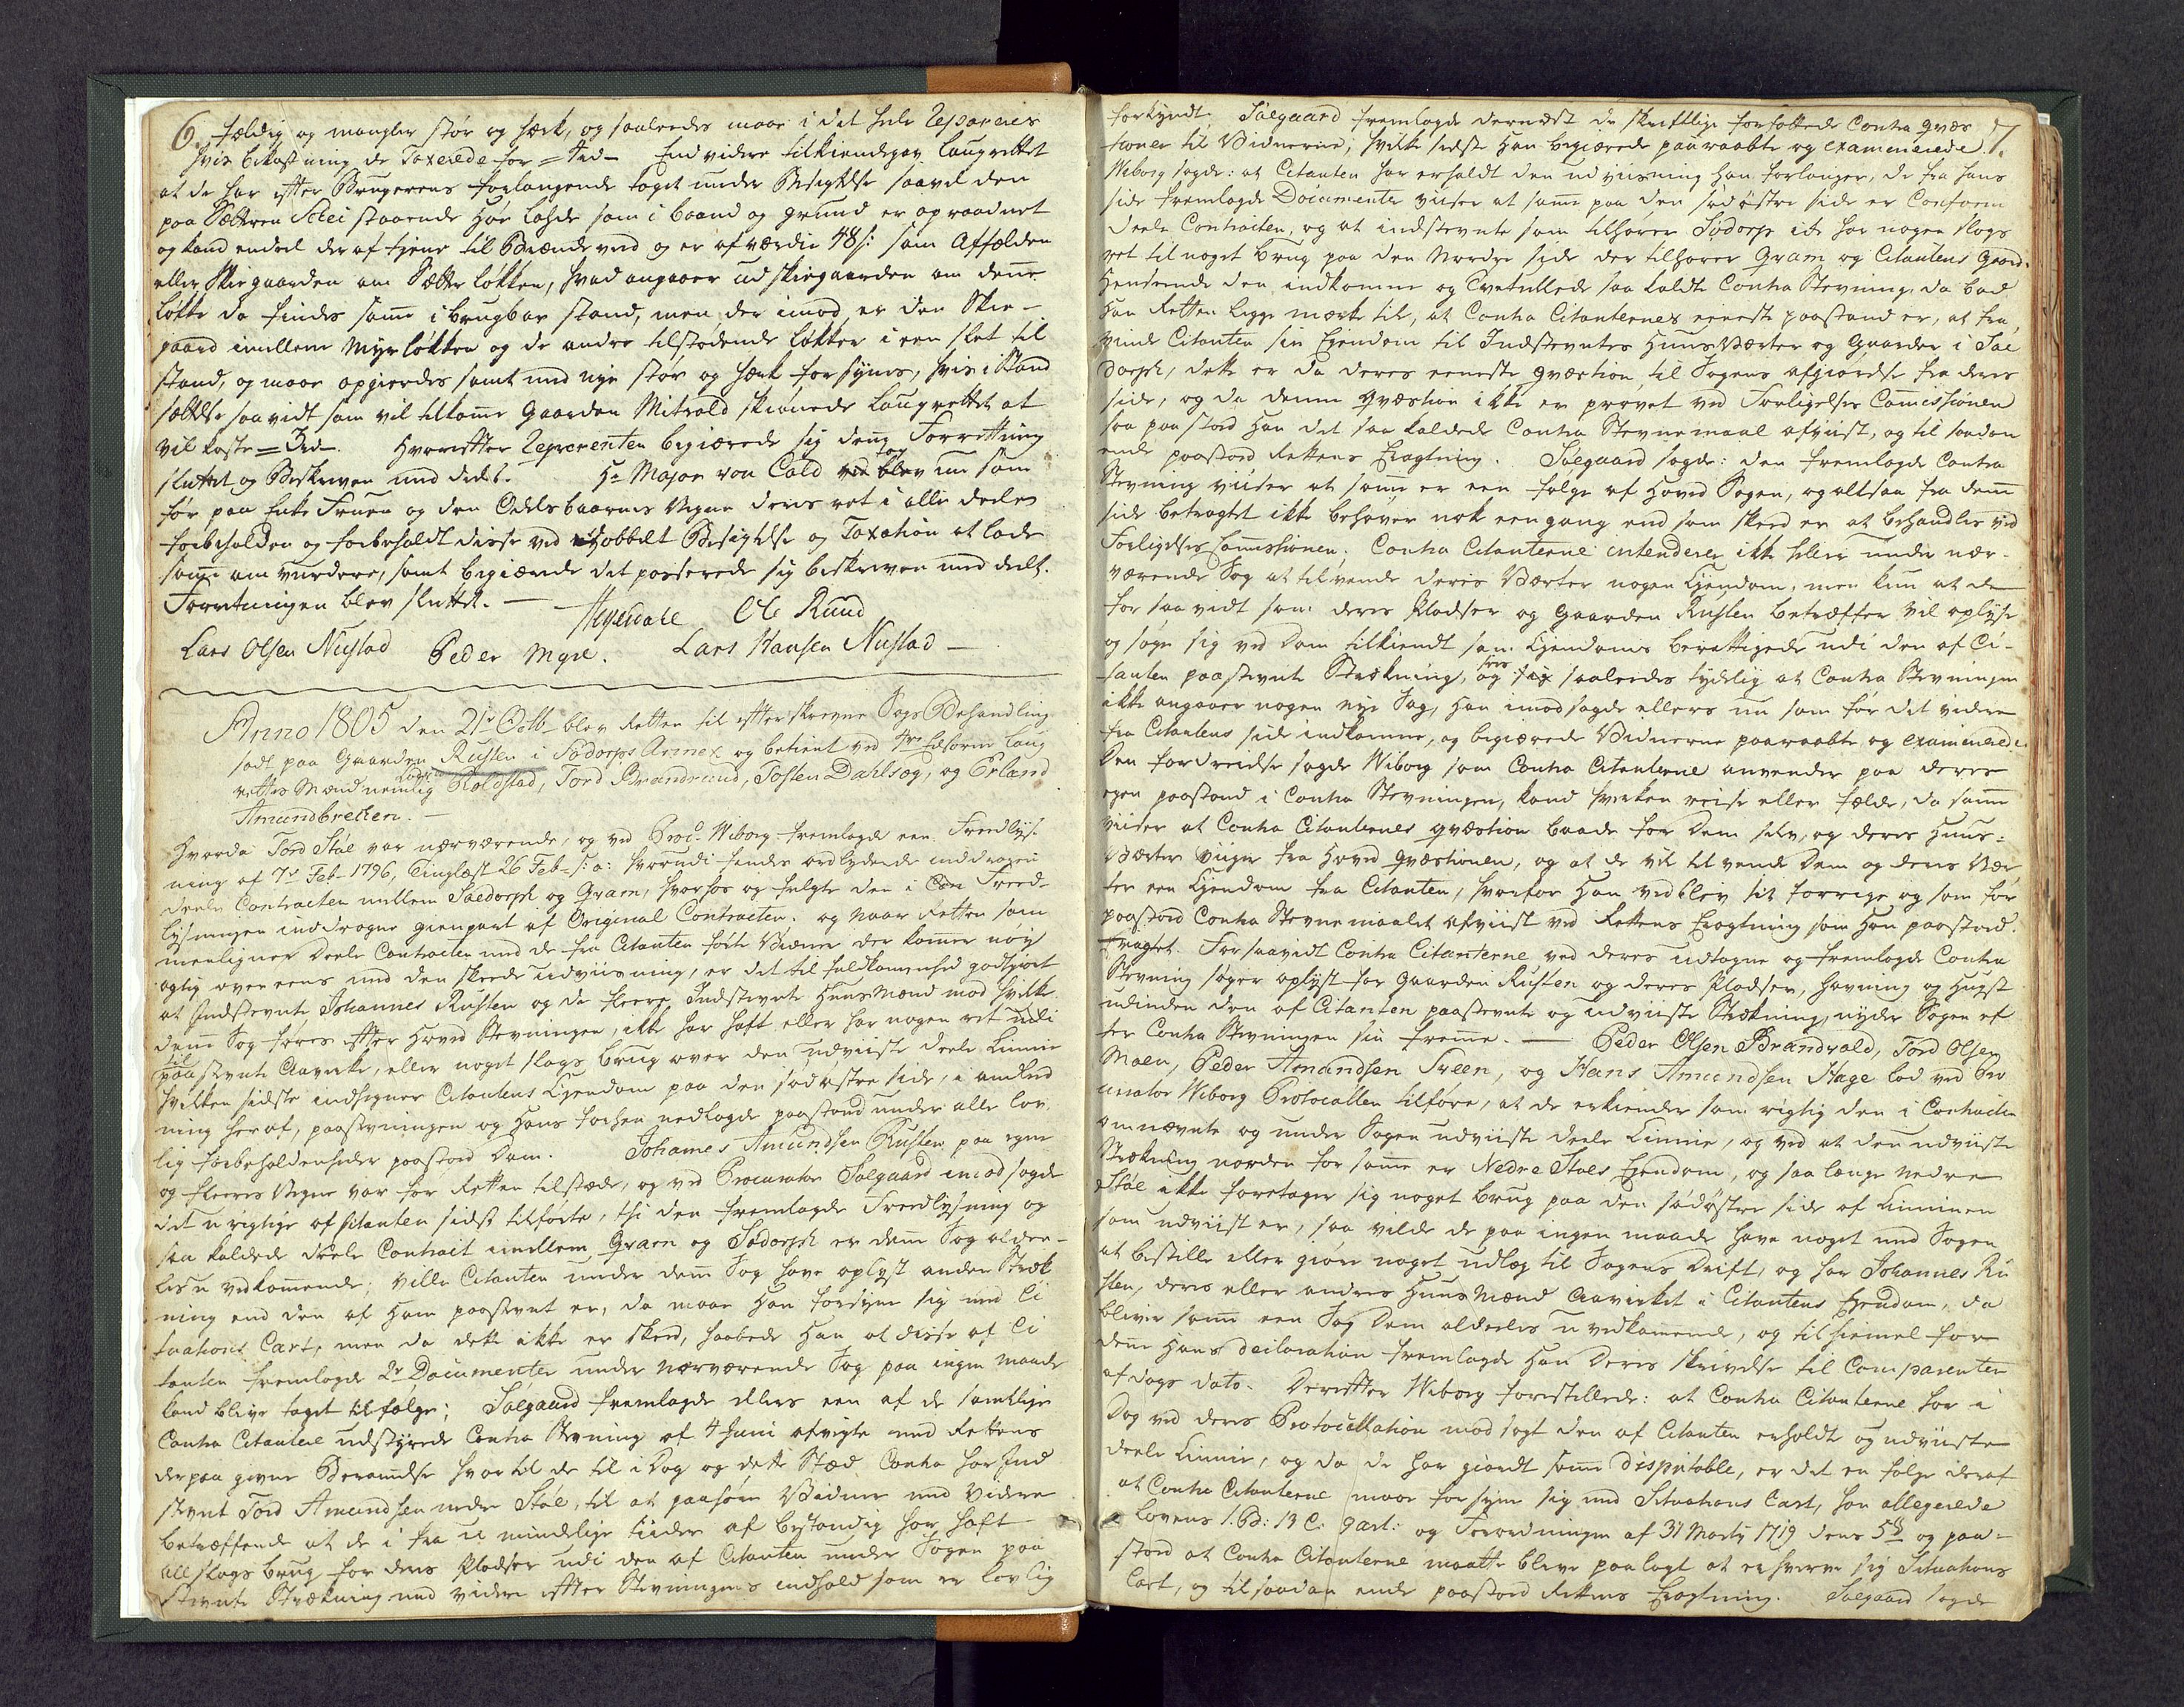 6.
fældig og mangler stør og hank, og saaledes maae i det hele Repareres
hvis bekostning de Taxerede for = 4rd – Endvidere tilkiendegav Laugrettet
at de har efter Brugerens forlangende taget under Besigtelse saavel den
paa Sætteren Schei staaende Høe Lahde som i baand og grund er opraadnet
og kand endeel deraf tjene til Brændeved og er af værdie 48 s: som Affælden
eller Skiegaarden om Sætter Løkken, hvad angaaer udskiegaarden om denne
Løkke da findes samme i brugbar stand, men der imod er den Skie-
gaard imellem Myrløkken og de andre tilstødende løkker i een slet til
stand, og maae opgierdes samt med nye stør og hank forsynes, hvis i Stand
sættelse saavidt som vil tilkomme Gaarden Mitvold skiønnede Laugrettet at
vil koste = 3rd –. Hvorefter Reqverenten begierede sig denne Forretning
sluttet og Beskreven meddeelt. Hr Major von Cald tog nu som
før paa Enke Fruen og den Odelsbaarnes Vegne deres ret i alle deele
forbeholden og forbeholdt disse ved Dobbelt Besigtelse og Taxation at lade
samme om vurdere, samt begierede det passerede sig beskreven meddeelt.
Forretningen blev sluttet. —
Heyerdahl Ole Ruud
Lars Olsen Nustad Peder Myre. Lars Hansen Nustad —
Anno 1805 den 21de Octb. blev Retten til efterskrevne Sags Behandling
sadt paa Gaarden Rusten i Sødorps Annex og betient ved 4re Edsorne Laug
rettes Mænd nemlig Koldstad, Tord Brandrud, Tosten Dahlsog, og Erland
Amundbrekken. —
Hvorda Tord Stål var nærværende, og ved Proc. Wiborg fremlagde een Freedlys-
ning af 7de Feb. 1796, Tinglæst 26 Feb. s: a: hvorudi findes ordlydende inddragen
Deele Contracten mellem Saedorph og Gram, hvorhos og fulgte den i Freed-
lysningen inddragne gienpart af Original Contracten. og naar Retten sam
menligner Deele Contracten med de fra Citanten førte Vidner der kommer nøy
agtig overeens med den skeede Udviisning, er det til fuldkommenhed godtgiort
at Indstevnte Johannes Rusten og de fleere Indstevnte Huusmænd mod hvilke
denne Sag føres efter Hoved Stevningen, ikke har haft eller har nogen ret udi
paastevnte Aavirke, eller noget slags brug over den udviiste Deele Linnie
hvilken sidste indhegner Citantens Eiendom paa den sødøstre side, i anled
ning heraf, paastevningen og Hans forhen nedlagde paastand under alle lov
lig forbeholdenheder paastod Dom. Johannes Amundsen Rusten paa egne
og fleeres Vegne var for Retten tilstæde, og ved Procurator Sølgaard imodsagde
det urigtige af Citanten sidst tilførte, thi den fremlagde Freedlysning og
saa kaldede Deele Contract imellem Gram og Sødorph er denne Sag alde-
les uvedkommende; Ville Citanten under denne Sag have oplyst anden Stræk
ning end den af Ham paastevnt er, da maae Han forsyne sig med Si
tuations Cart, men da dette ikke er skeed, haabede Han at disse af Ci
tanten fremlagde 2de Documenter under nærværende Sag paa ingen maade
kand blive taget til følge; Sølgaard fremlagde ellers een af de samtlige
Contra Citantere udstyrede Contra Stevning af 4 Juni afvigte med Rettens
derpaa givne Berammelse hvortil de til i Dag og dette Sted Contra har Ind
stevnt Tord Amundsen nedre Stål, til at paahøre Vidner med Videre
betræffende at de i fra umindelige tiider af bestandig har haft
all slags brug for deres Pladser udi den af Citanten under Sagen paa
stevnte Strækning med videre efter Stevningens indhold som er lovlig
7.
forkyndt. Sølgaard fremlagde dernæst de skriftlige forfattede Contra Qvæs
tioner til Vidnerne, hvilke sidste Han begierede paaraabte og examinerede.
Wiborg sagde: at Citanten har erholdt den udviisning han forlanger, de fra hans
side fremlagde Documenter viiser at samme paa den sødøstre side er Conform
Deele Contracten, og at indstevnte som tilhører Sødorp ikke har nogen slags
ret til noget brug paa den Nordre side der tilhører Gram og Citantens Gaard.
Henseende den indkomne og Tvetullede saa kaldte Contra Stevning, da bad
Han Retten legge mærke til, at Contra Citanternes eeneste paastand er, at fra,
vinde Citanten sin Eiendom til Indstevntes Huusværter og Gaarder i Sæ
dorph, dette er da deres eeneste Qvæstion til Sagens afgiørelse fra deres
side, og da denne Qvæstion ikke er prøvet ved Forligelses Commissionen
saa paastod Han det saa kaldede Contra Stevnemaal afviist, og til saadan
ende paastod Rettens Eragtning. Sølgaard sagde: den fremlagde Contra
Stevning viiser at samme er een følge af Hoved Sagen, og altsaa fra denne
side betragtet ikke behøver nok een gang end som skeed er at behandles ved
Forligelses Commissionen. Contra Citanterne intenderer ikke heller under nær-
værende Sag at tilvende deres Værter nogen Eiendom, men kun at de
for saavidt som deres Pladser og Gaarden Rusten betræffer vil oplyse
og søge sig ved Dom tilkiendt som Eiendoms berettigede udi den af Ci-
tanten paastevnte Strækning, og sees saaledes tydelig at Contra Stevningen
ikke angaaer nogen nye Sag, Han imodsagde ellers nu som før det videre
fra Citantens side indkomne, og begierede Vidnerne paaraabte og examinerede.
Den fordreielse sagde Wiborg som Contra Citanterne anvender paa deres
egen paastand i Contra Stevningen, kand hverken reise eller fælde, da samme
viiser at Contra Citanternes qvæstion baade for Dem selv og deres Huus-
Værter viiger fra Hoved Qvæstionen, og at de vil tilvende Dem og deres Vær
ter een Eiendom fra Citanten, hvorfor Han vedblev sit forrige og som før
paastod Contra Stevnemaalet afviist ved Rettens Eragtning som Han paastod.
Eragtet. Forsaavidt Contra Citanterne ved deres udtagne og fremlagde Contra
Stevning søger oplyst for Gaarden Rusten og deres Pladser, havning og Hugst
udinden den af Citanten paastevnte og udviiste Strækning, nyder Sagen ef
ter Contra Stevningen sin fremme. — Peder Olsen Brandvold, Tord Olsen
Moen, Peder Amundsen Sveen, og Hans Amundsen Hage lod ved Pro
curator Wiborg Protocollen tilføre, at de erkiender som rigtig den i Contracten
omnævnte og under Sagen udviiste Deele Linnie, og ved at den udviiste
Strekning norden for samme er Nedre Stoels Eiendom, og saa længe nedre
Stål ikke foretager sig noget brug paa den sødøstre side af Linnien
som udviist er, saa vilde de paa ingen maade have noget med Sagen
at bestille eller giøre noget udlæg til Sagens Drift, og har Johannes Ru
sten, deres eller andres Huusmænd Aavirket i Citantens Eiendom, da
bliver samme een Sag dem aldeeles uvedkommende, og til hiemel for
denne Hans declaration fremlagde Han deres skrivelse til Comparenten
af dags dato. Derefter Wiborg forestillede: at Contra Citanterne har i
Dag ved deres Protocollation modsagt den af Citanten erholdte og udviiste
Deele Linnie, og da de har giordt samme disputable, er det en følge deraf
at Contra Citanterne maae forsyne sig med Situations Cart, han allegerede
Lovens 1. B: 13 C: 9 art: og Forordningen af 31 Marty 1719 dens 5 § og paa-
stod at Contra Citanterne maatte blive paalagt at erhverve sig Situations
Cart, og til saadan ende paastod Rettens Eragtning. Sølgaard sagde